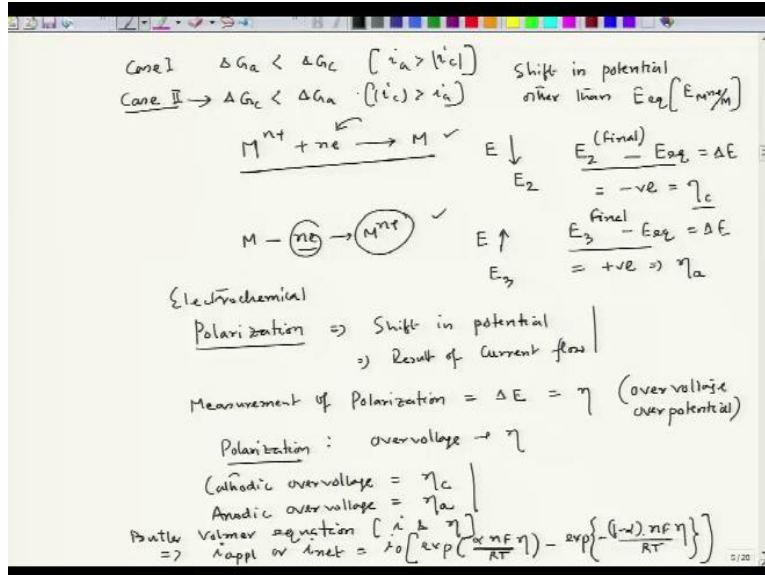 Case I ΔGa < ΔGc [ia > |ic|] Shift in potential
Case II → ΔGc < ΔGa · (|ic| > ia) other than Eeq [E Mn+/M]
M^n+ + ne → M ✓ E ↓ E2 (final) - Eeq = ΔE
E2 = -ve = ηc
M - ne → M^n+ ✓ E ↑ E3 final - Eeq = ΔE
E3 = +ve => ηa
Electrochemical
Polarization => Shift in potential
=> Result of current flow
Measurement of Polarization = ΔE = η (overvoltage
overpotential)
Polarization : overvoltage → η
Cathodic overvoltage = ηc
Anodic overvoltage = ηa
Butler Volmer equation [i & η]
=> iappl or inet = i0[exp(αnFη/RT) - exp{-(1-α)nFη/RT}]
5/20